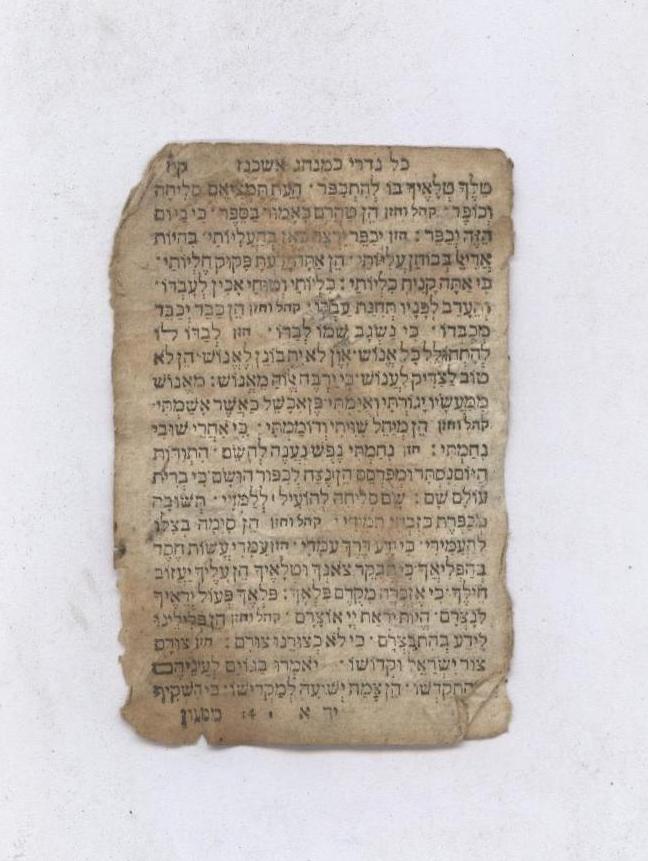 כל נדרי כמנהג אשכנז קיז
טָלֶךָ טְלָאֶיךָ בּוֹ לְהִתְכַּפֵּר ׃ הָעֵת תַּמְצִיאֵם סְלִיחָה
וְכוֹפֶר ׃ קהל וחזן הֵן טַהֲרֵם כְּאָמוּר בַּסֵּפֶר ׃ כִּי בַיּוֹם
הַזֶּה יְכַפֵּר ׃ חזן יְכַפֵּר בְּהַעֲלִיּוֹתַי ׃ בִּהְיוֹת
עֲלִיּוֹתַי ׃ הֵן אַתָּה פִּקּוּק חֻלְיוֹתַי ׃
כִּי אַתָּה קָנִיתָ כִלְיוֹתָי ׃ כִּלְיוֹתַי וּטֻחוֹי אָכִין לְעָבְדּוֹ ׃
לְפָנָיו תְּחִנַּת עַבְדּוֹ ׃ קהל וחזן הֵן כַּבֵּד יְכַבֵּד
מְכַבְּדוֹ ׃ כִּי נִשְׂגָּב שְׁמוֹ לְבַדּוֹ ׃ חזן לְבַדּוֹ לוֹ
לְהִתְחוֹלֵל כָּל אֱנוֹשׁ ׃ אָוֶן לֹא יִתְבּוֹנֵן לֶאֱנוֹשׁ ׃ הֵן לֹא
טוֹב לַצַּדִּיק לַעֲנוֹשׁ ׃ כִּי יִרְבֶּה אֱלוֹהַּ מֵאֱנוֹשׁ ׃ מֵאֱנוֹשׁ
מִמַּעֲשָׂיו יָגוֹרְתִּי וְאָיַמְתִּי ׃ פֶּן אִכָּשֵׁל כַּאֲשֶׁר אָשַׁמְתִּי ׃
קהל וחזן הֵן מְיַחֵל שִׁוִּיתִי וְדוֹמַמְתִּי ׃ כִּי אַחֲרֵי שׁוּבִי
נִחָמְתִּי ׃ חזן נִחַמְתִּי נֶפֶשׁ נַעֲנָה לְהָשֵׂם ׃ הִתְוַדּוֹת
הַיּוֹם נִסְתָּר וּמְפֻרְסָם הֵן נֶצַח לְכִפּוּר הוּשַׂם ׃ כִּי בְרִית
עוֹלָם שָׂם ׃ שָׂם סְלִיחָה לְהוֹעִיל לְלַמְּדִי ׃ תְּשׁוּבָה
מְכַפֶּרֶת תְּמִידִי ׃ קהל וחזן הֵן סִימָה בְּצִלּוֹ
לְהַעֲמִידִי ׃ כִּי יָדַע דֶּרֶךְ עִמָּדִי ׃ חזן עִמָּדִי עֲשׂוֹת חֶסֶד
בְּהַפְלִיאֶךָ ׃ כִּי תְבַקֵּר צֹאנְךָ וּטְלָאֶיךָ הֵן עָלֶיךָ יַעֲזוֹב
חֵילֶךָ ׃ כִּי אֶזְכְּרָה מִקֶּדֶם פִּלְאֶךָ ׃ פִּלְאֶךָ פְּעוֹל יְרֵאֶיךָ
לְנָצְרָם ׃ הֱיוֹת יִרְאַת יְיָ אוֹצָרָם ׃ קהל וחזן הֵן פְּלִילֵינוּ
לֵידַע בְּהִתְבַּצְּרָם ׃ כִּי לֹא כְצוּרֵנוּ צוּרָם ׃ חזן צוּרָם
צוּר יִשְׂרָאֵל וּקְדוֹשׁוֹ ׃ יֹאמְרוּ בַגּוֹיִם לְעֵינֵיהֶם
הִתְקַדְּשׁוֹ ׃ הֵן צֶמַח יְשׁוּעָה לְמַקְדִּישׁוֹ ׃ כִּי הִשְׁקִיף
יד א 4׃ ממעון